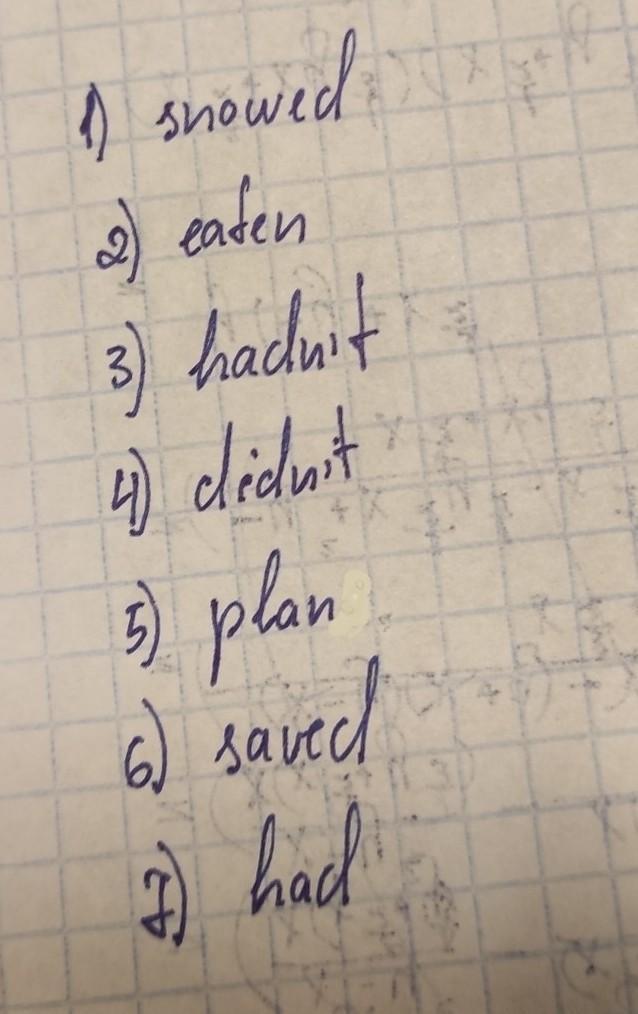 1) snowed
2) eaten
3) hadn't
4) didn't
5) plan
6) saved
7) had